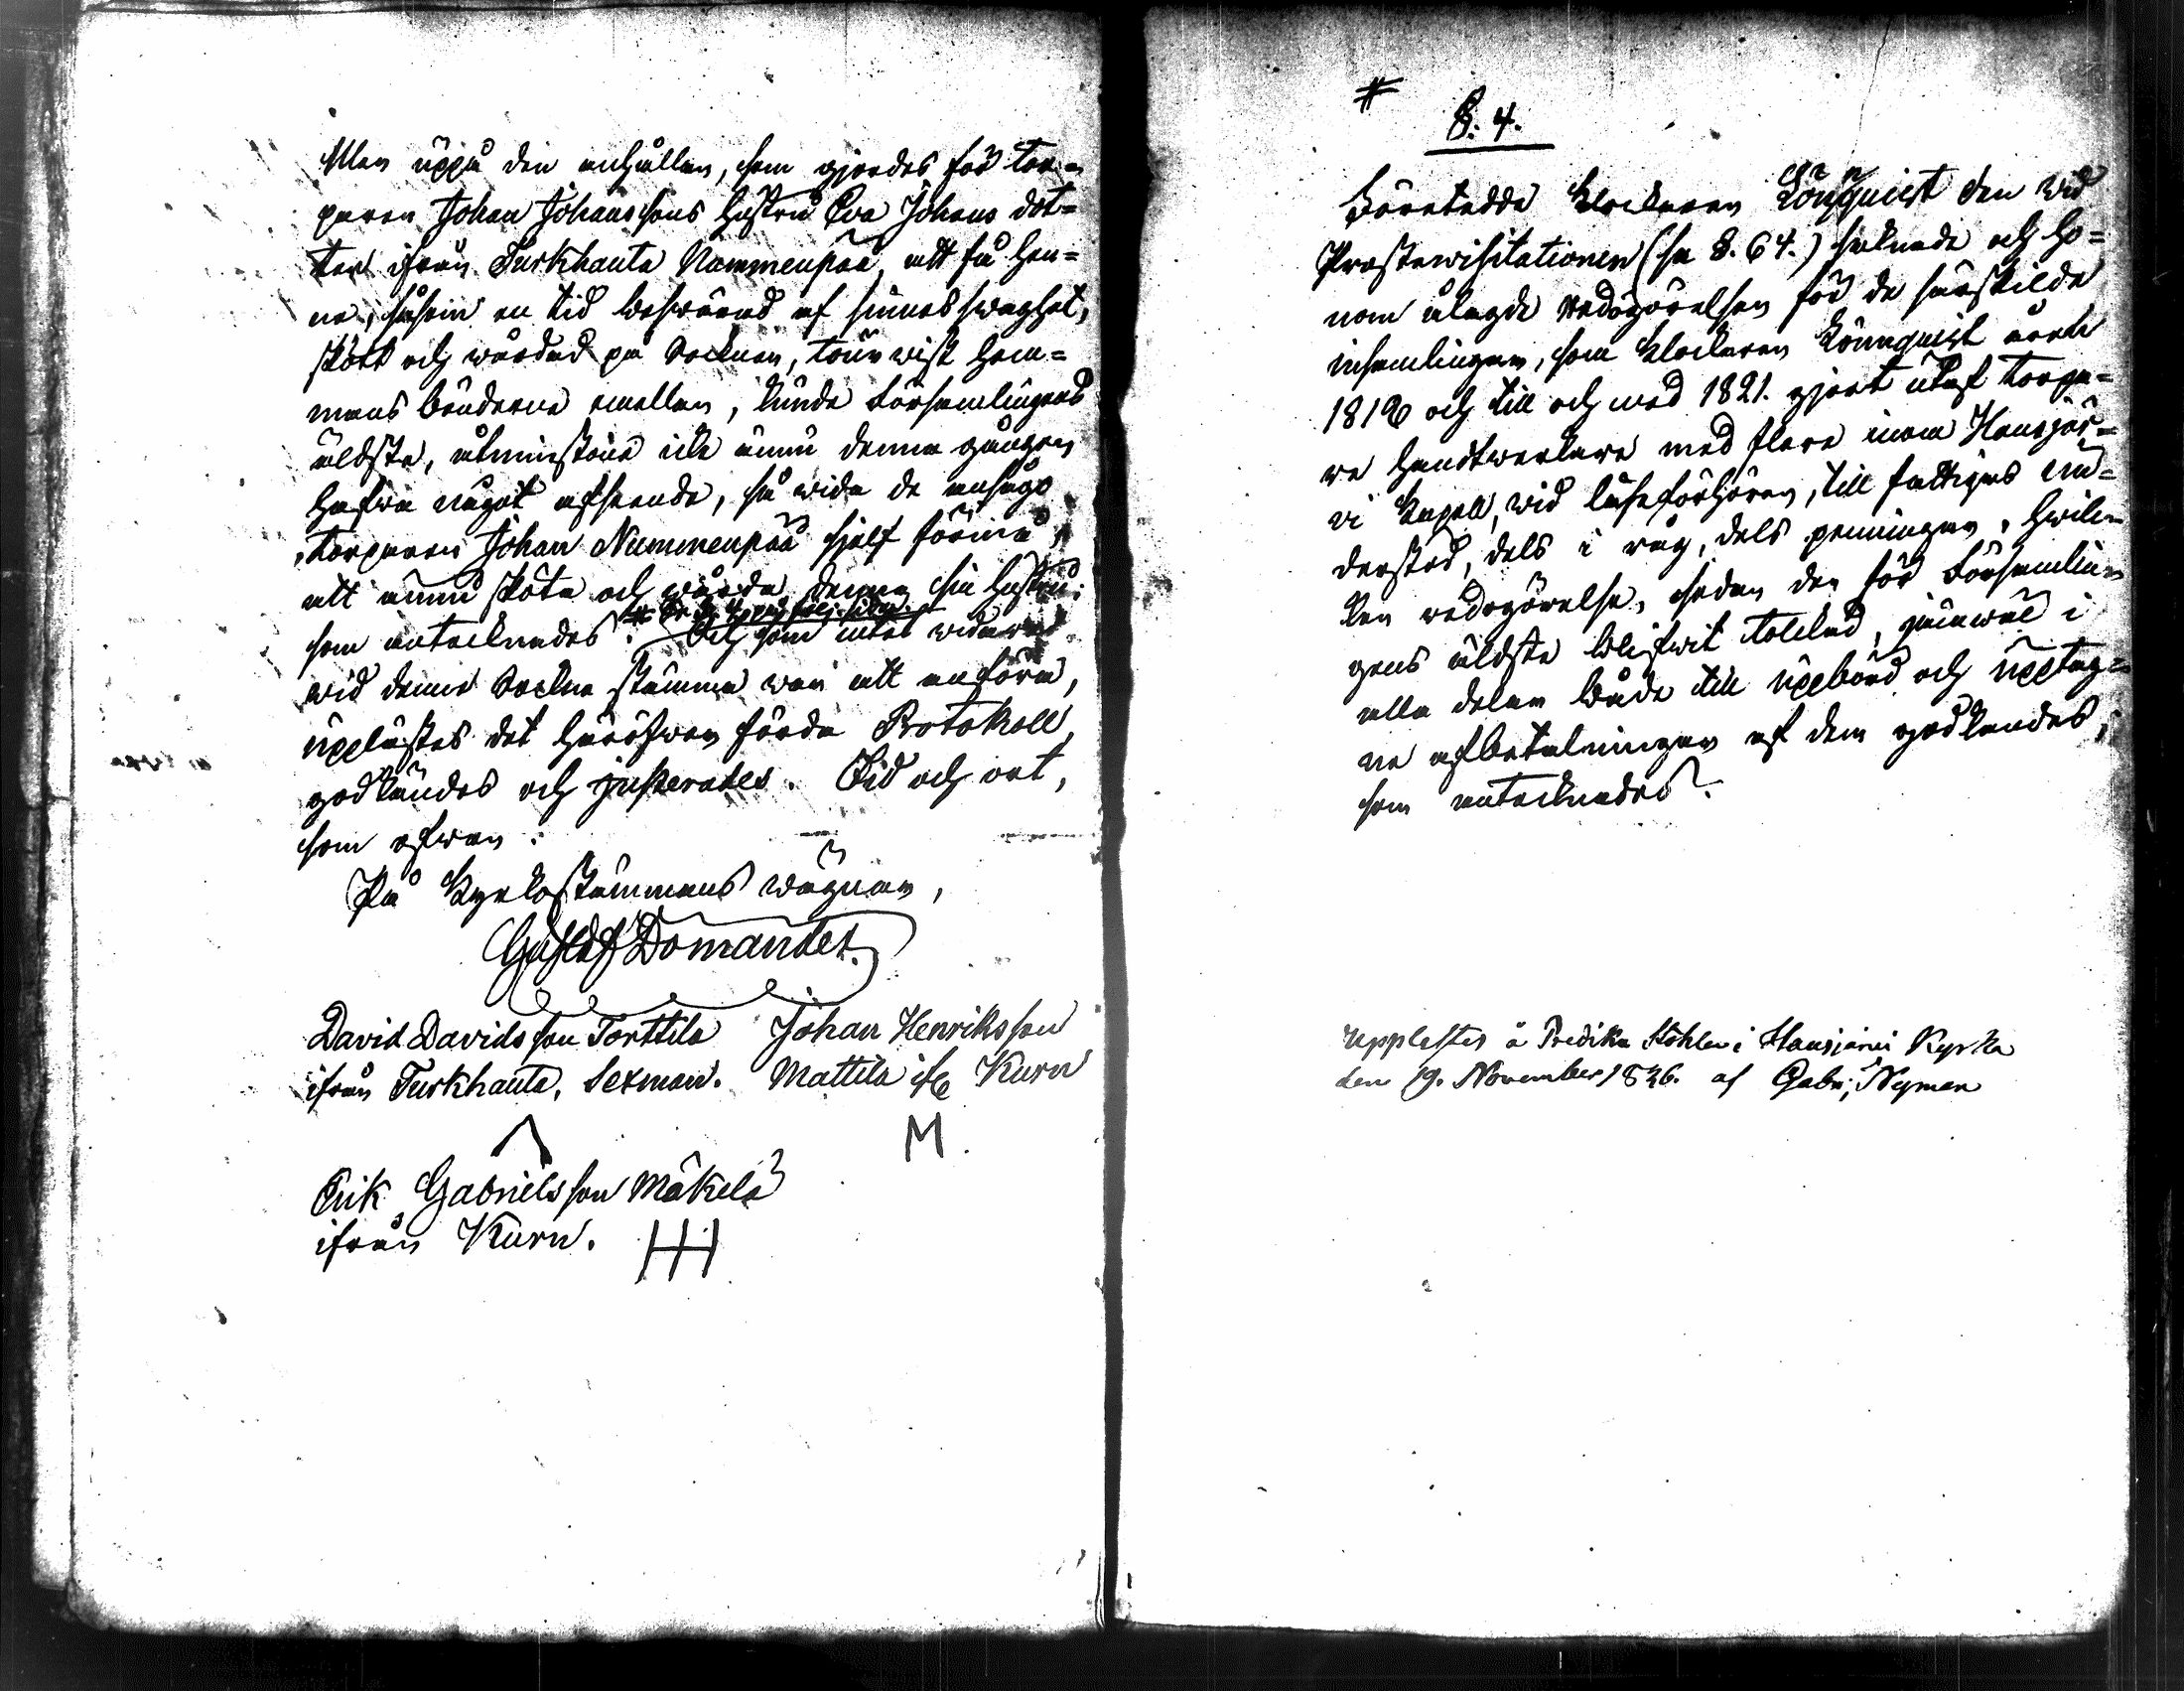 Men uppå den anhållan, som gjordes för tor-
paren Johan Johanssons hustru Eva Johans dot-
ter ifrån Turkhauta Nummenpää, att få hen-
ne, såsom en tid beswärad af sinnes swaghet,
skött och wårdad på Socknen, tourwist hem-
mans bönderne emellan, kunde Församlingens
äldste, åtminstone icke ännu denna gången
hafwa något afseende, så wida de ansågo
torparen Johan Nummenpää sjelf förmå
att ännu sköta och wårda denna sin hustru;
som antecknades.
# Se §. 4 på följ. sidan.
Och som intet widare
wid denne Sockne stämma war att anföra,
upplästes det häröfwer förda Protokoll,
godkändes och justerades. Tid och ort,
som ofwan.
På Kyrkostämmans wägnar,
Gustaf Domander.
David Davidsson Torttila
ifrån Turkhauta, Sexman.
Johan Henriksson
Mattila ifr. Kuru
M.
Erik Gabrielsson Mäkelä
ifrån Kuru.
#
§. 4.
Företedde klockaren Lönnquist den wid
Prostewisitationen (se §. 64.) saknade och ho-
nom ålagde redogörelsen för de särskilde
insamlingar, som klockaren Lönnquist ifrån
1816 och till och med 1821. gjort utaf torpa-
re handtwerkare med flere inom Hausjär-
vi kapell, wid läseförhören, till fattigas un-
derstöd, dels i råg, dels penningar, hwil-
ken redogörelse, sedan den för Församlin-
gens äldste blifwit tolkad, jemwäl i
alla delar både till uppbörd och upptag-
ne afbetalningar af dem godkändes,
som antecknades.
Upplästes å Predika Stohlen i Hausjärvi Kyrka
den 19. November 1826. af Gabr. Nyman